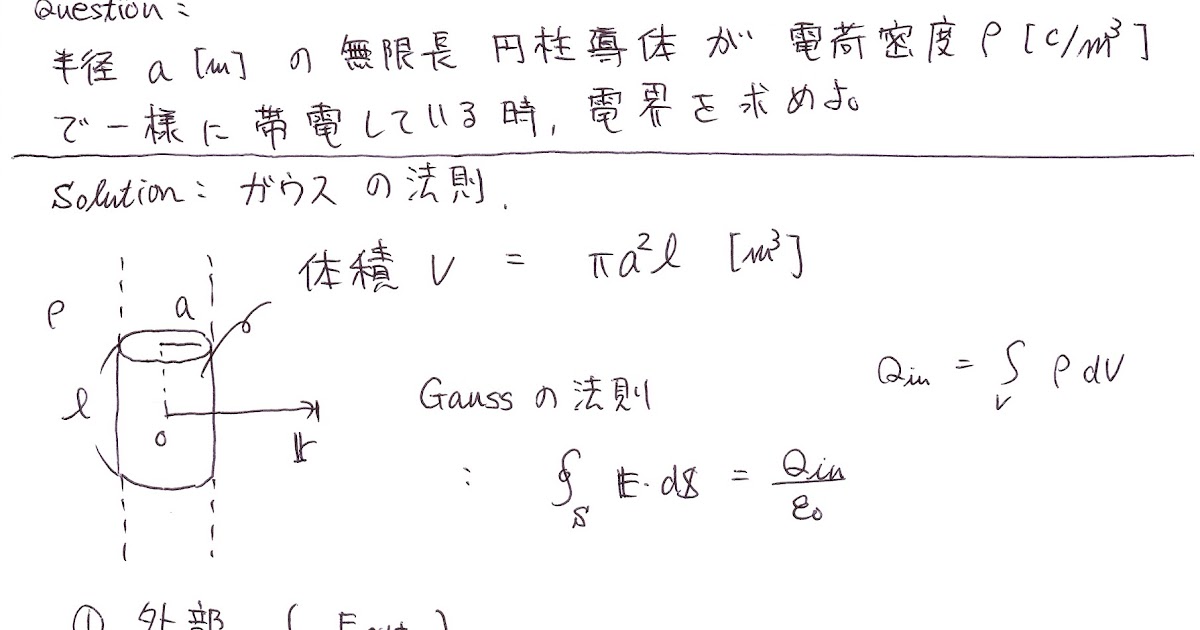 Question :
半径 a [m] の 無限長 円柱導体 が 電荷密度 ρ [c/m³]
で一様に 帯電している時, 電界を求めよ。
Solution : ガウスの法則.
体積 V = πa²l [m³]
ρ
a
l
o
r
Q in = ∫ v ρ dV
Gauss の法則
: ∮ s E・dS = Q in / ε₀
① 外部 ( E out )